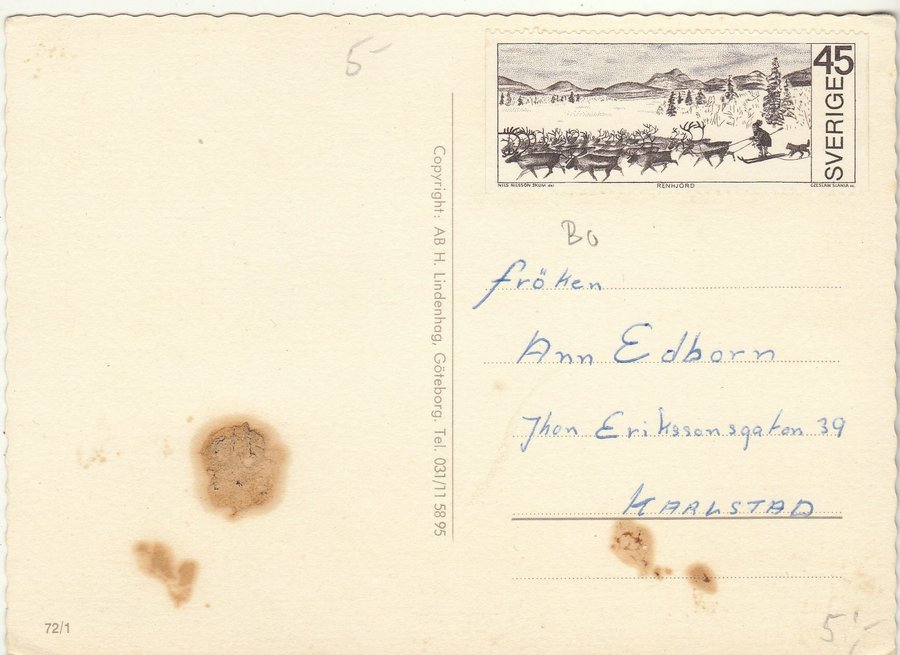 5-
SVERIGE 45
NILS NILSSON SKUM del. RENHJORD CZESLAW SLANIA sc.
Copyright: AB H. Lindenhag, Göteborg. Tel. 031/11 58 95
Bo
fröken
Ann Edborn
Jhon Erikssonsgatan 39
KARLSTAD
72/1
5:-